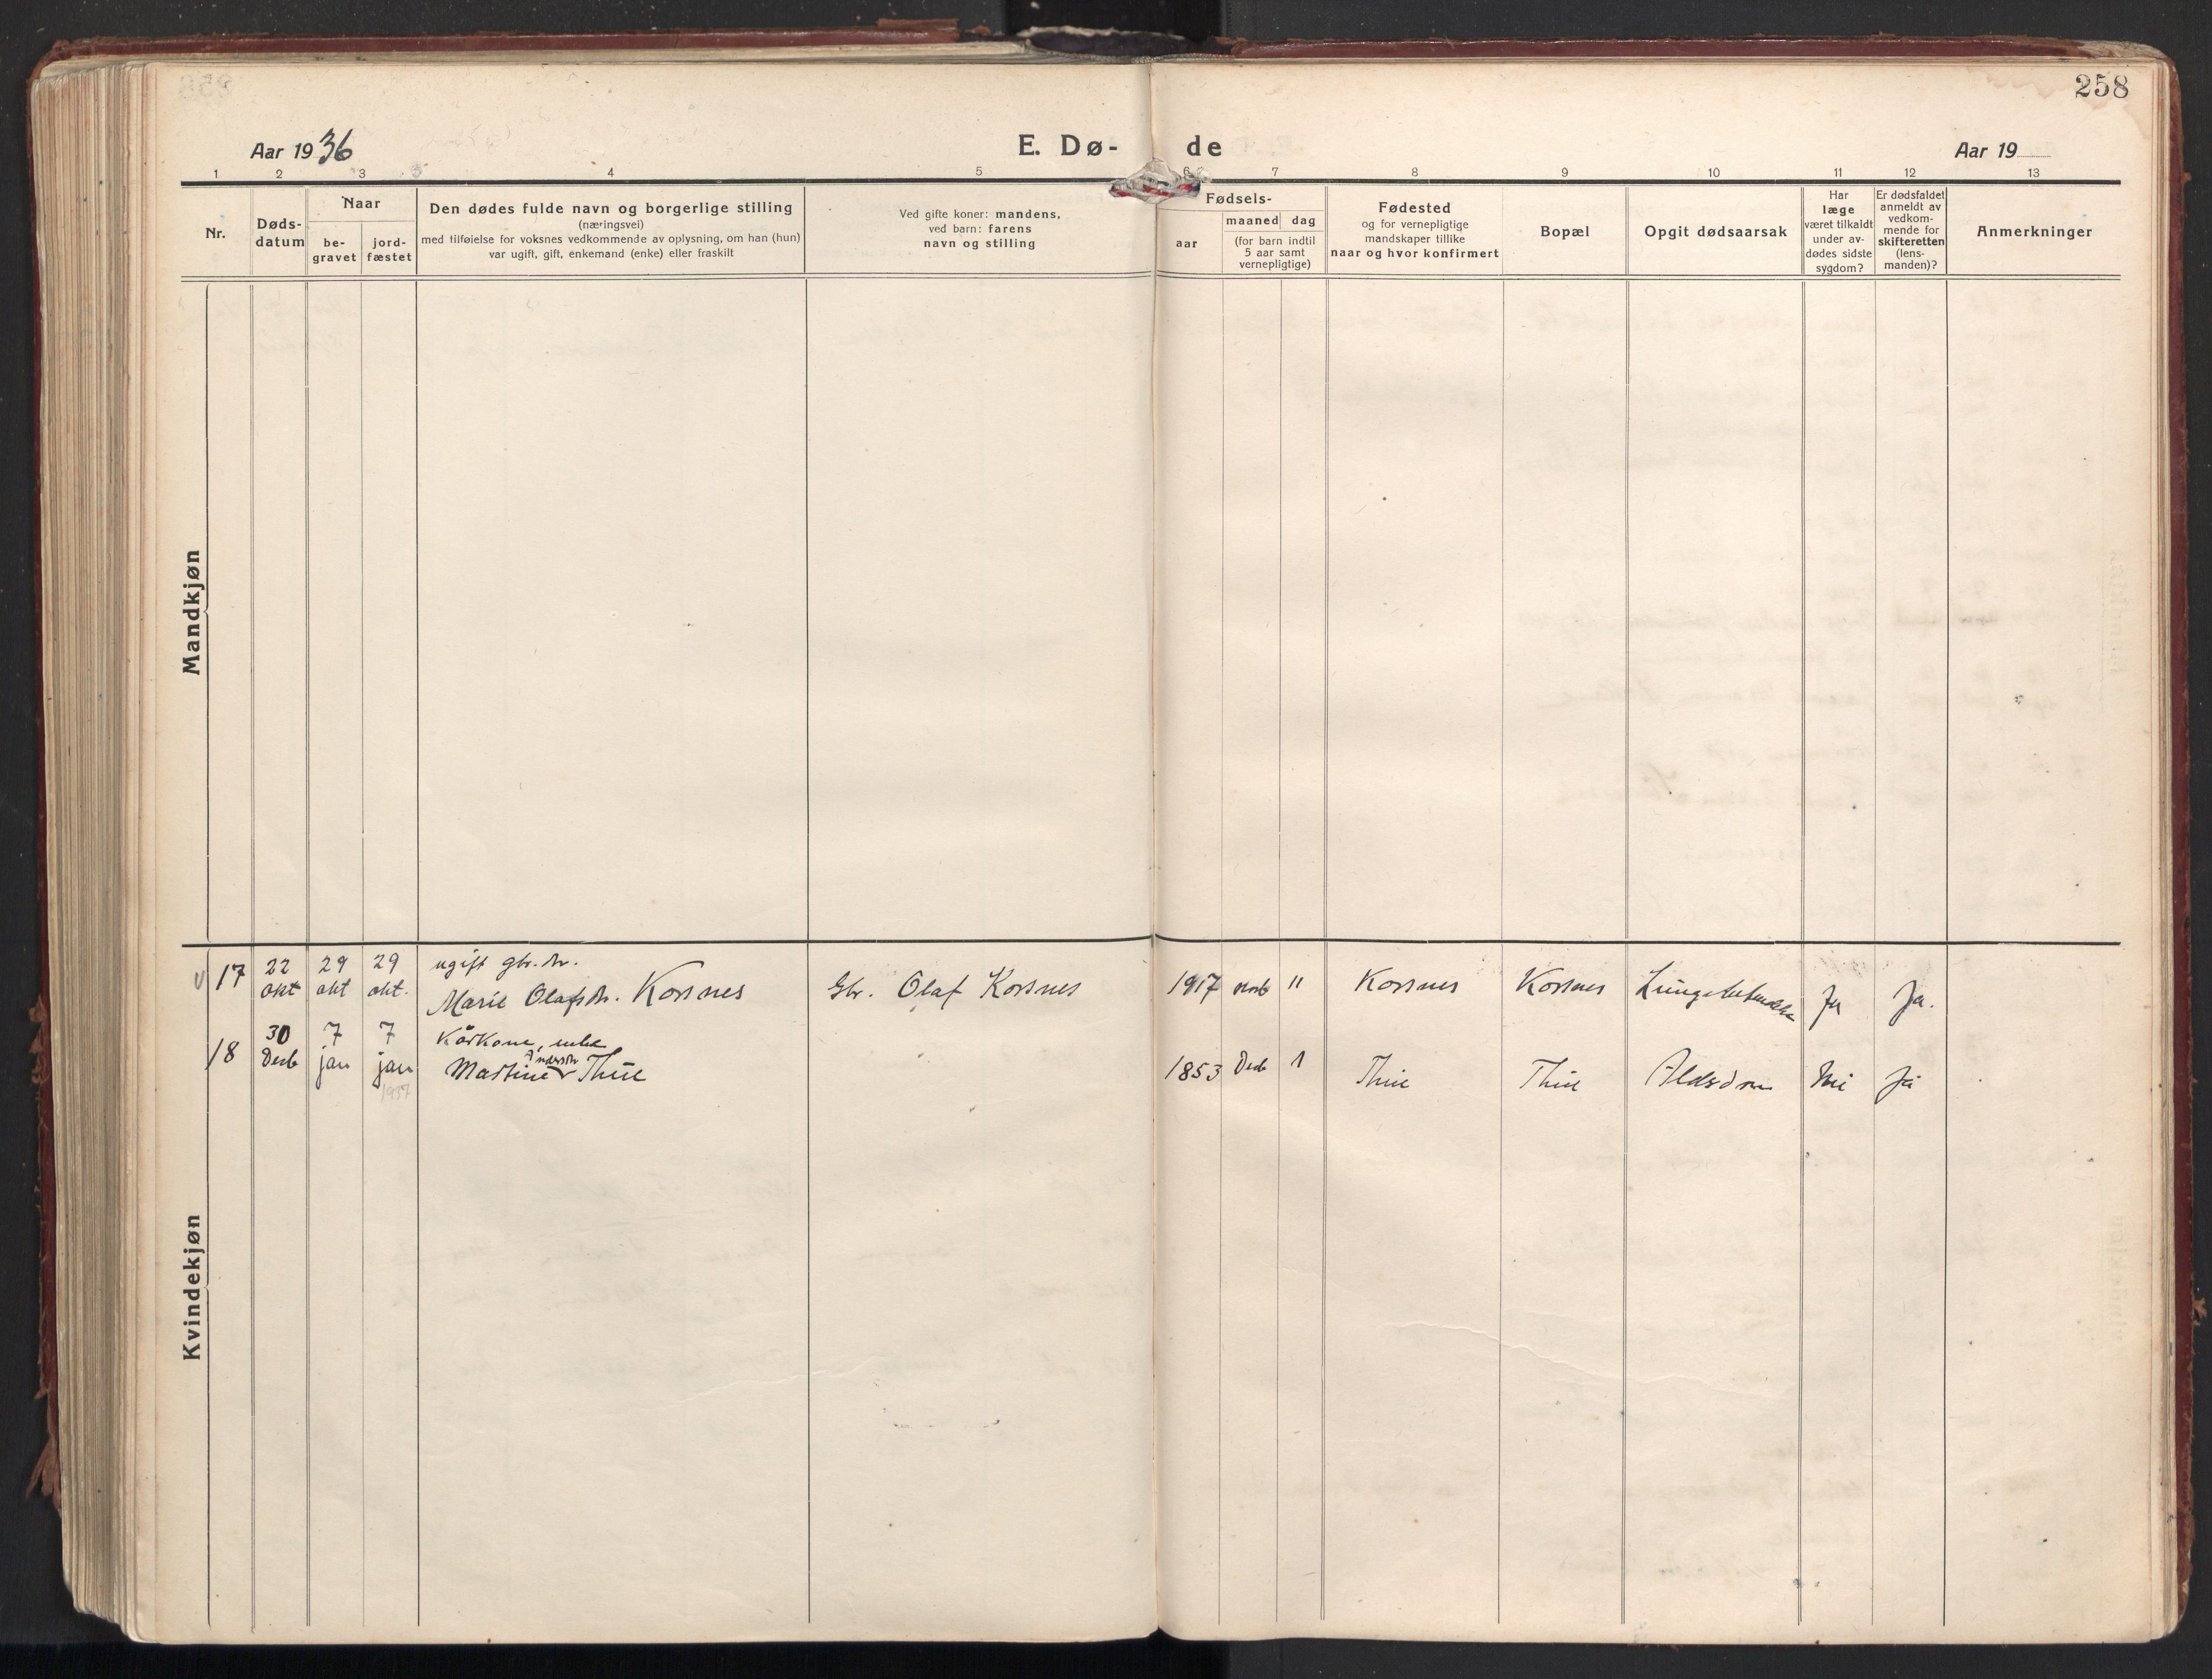 258
Aar 1936
E. Dø-
de
Aar 19
1 2 3 4 5 6 7 8 9 10 11 12 13
Nr.
Døds-
datum
Naar
be-
gravet
jord-
fæstet
Den dødes fulde navn og borgerlige stilling
(næringsvei)
med tilføielse for voksnes vedkommende av oplysning, om han (hun)
var ugift, gift, enkemand (enke) eller fraskilt
Ved gifte koner: mandens,
ved barn: farens
navn og stilling
Fødsels-
aar
maaned
dag
(for barn indtil
5 aar samt
vernepligtige)
Fødested
og for vernepligtige
mandskaper tillike
naar og hvor konfirmert
Bopæl
Opgit dødsaarsak
Har
læge
været tilkaldt
under av-
dødes sidste
sygdom?
Er dødsfaldet
anmeldt av
vedkom-
mende for
skifteretten
(lens-
manden)?
Anmerkninger
Mandkjøn
Kvindekjøn
22 29 29 ugift gbr. dtr.
17 okt okt okt. Marie Olafsdtr. Korsnes Gbr. Olaf Korsnes 1917 11 Korsnes Korsnes Ja Ja.
30 7 7 Kårkone, enke
Andersdtr
18 Desb jan jan Martine Thue 1853 Desb 1 Thue Thue Aldsdom Nei Ja
1937